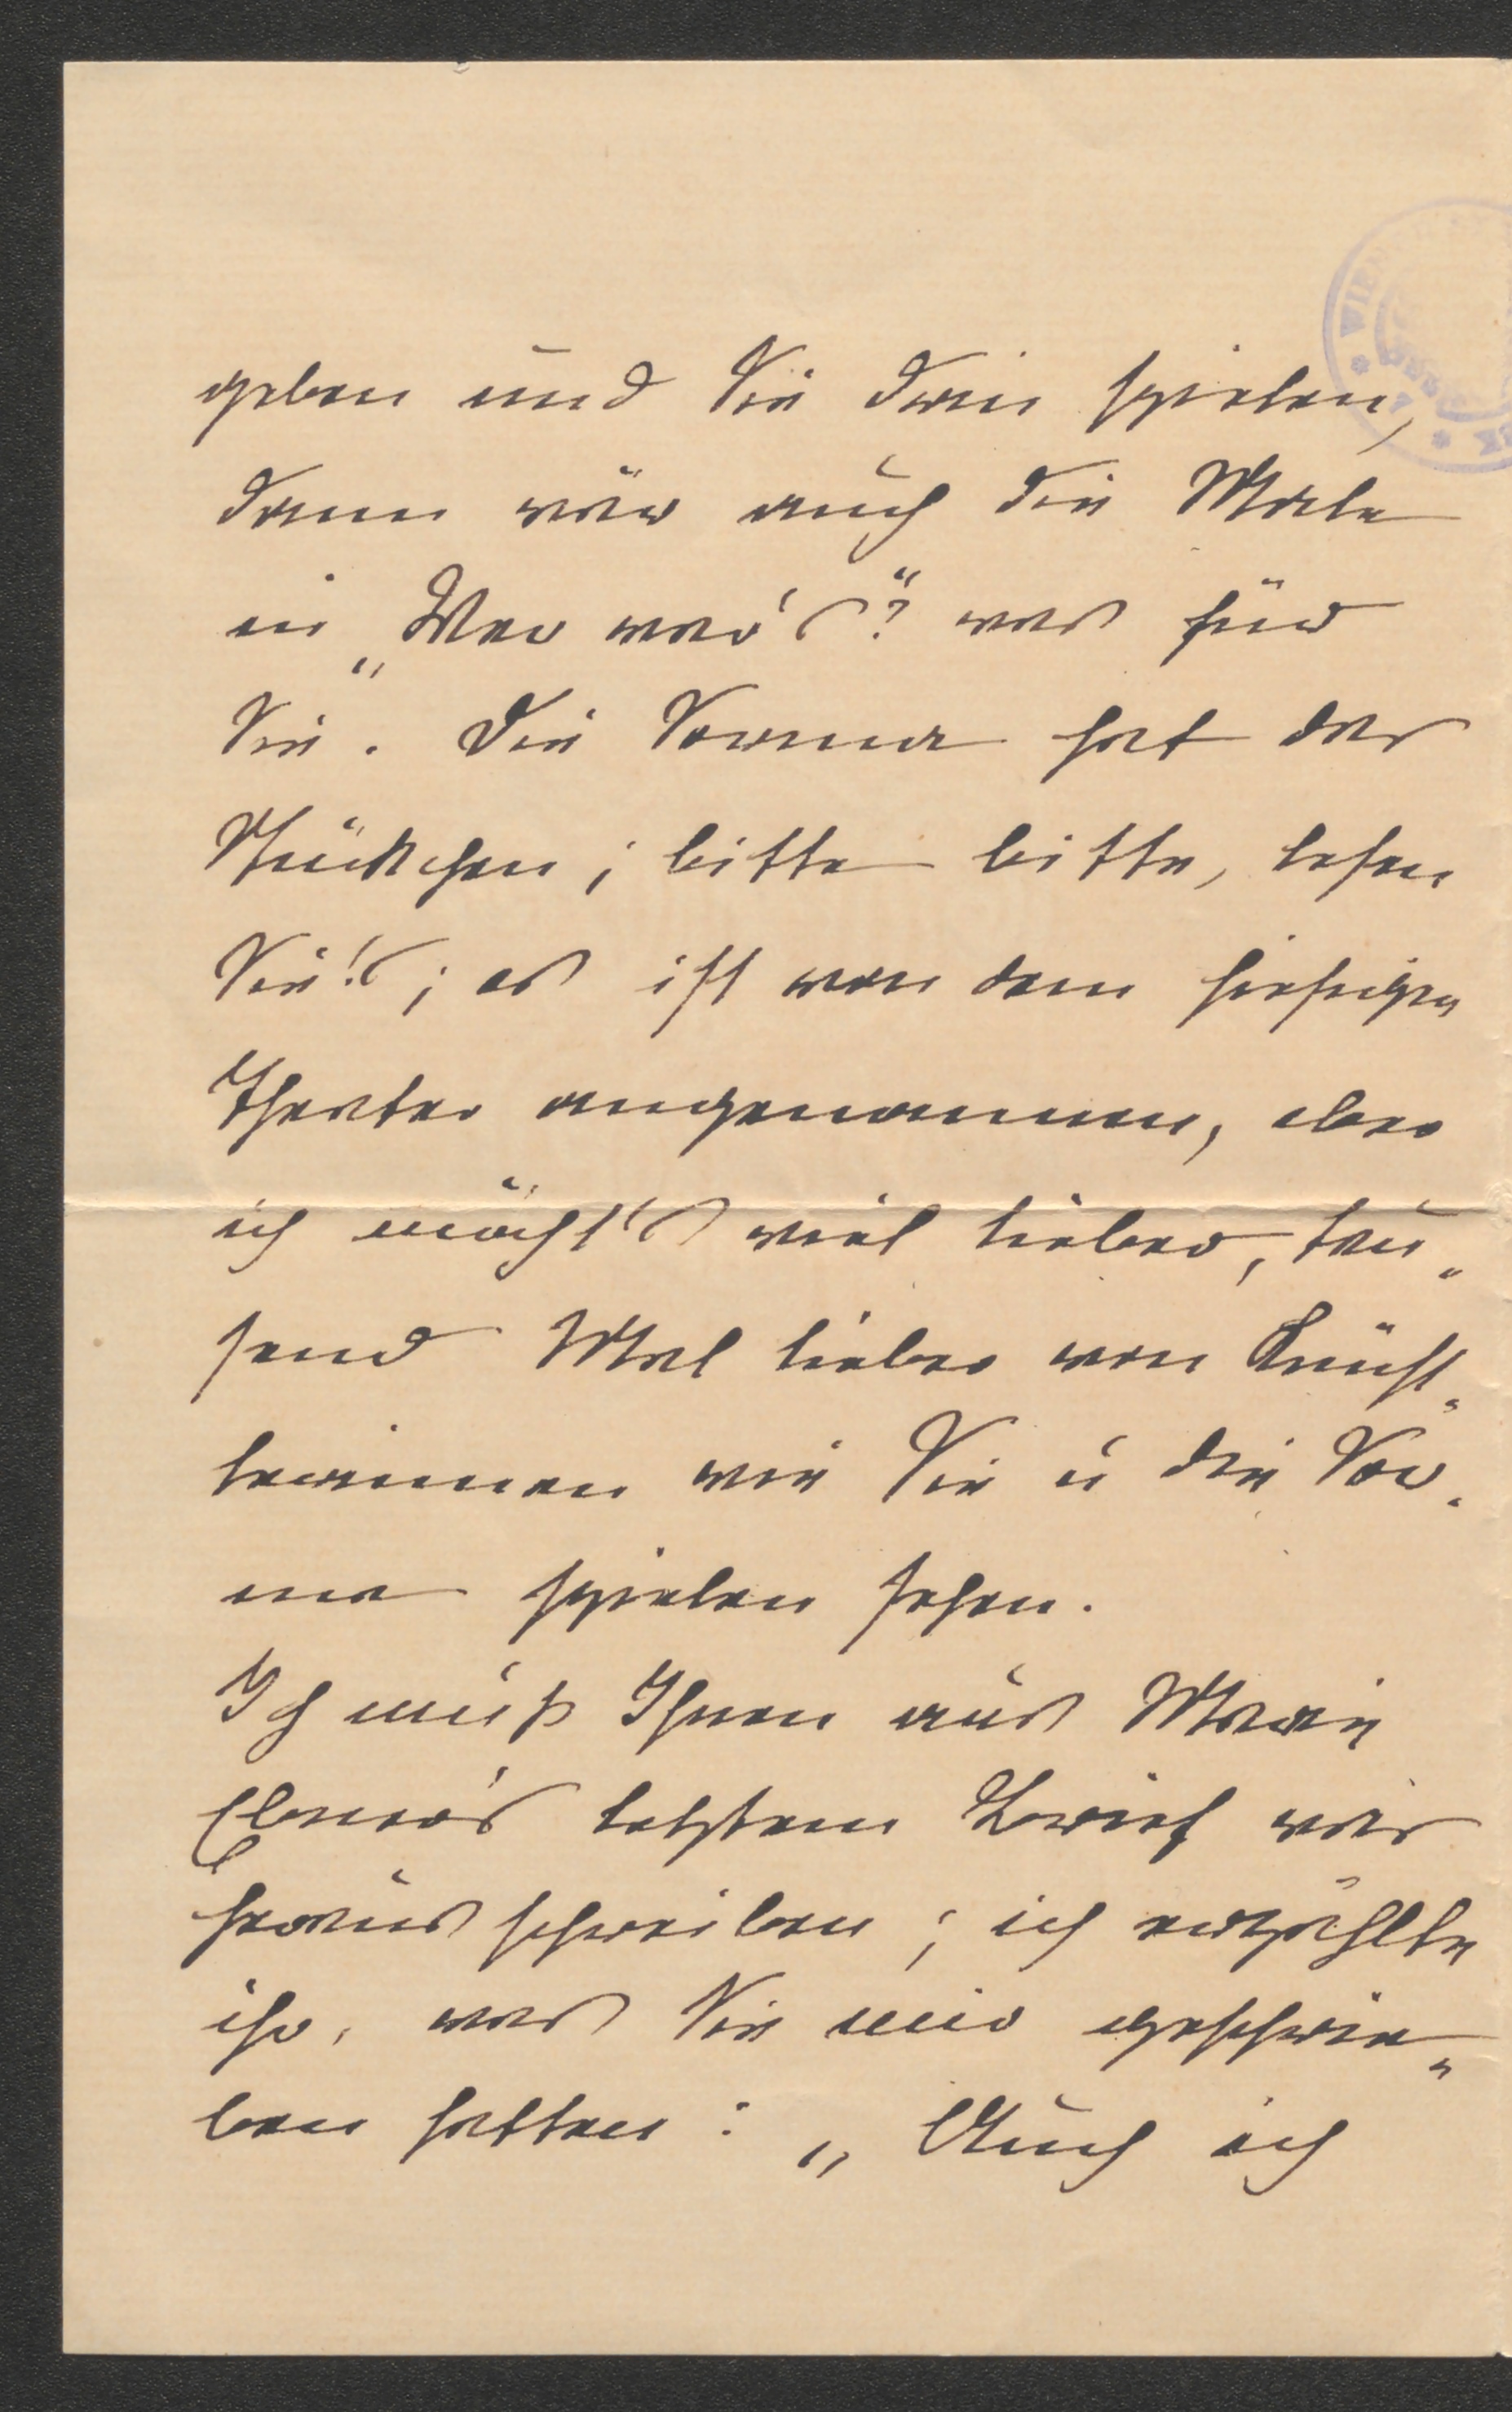 geben und Sie drin spielen,
dann wär auch die Male
in „Wer war's?" was für
Sie. Die Sorma hat das
Stückchen; bitte bitte, lesen
Sie's!; es ist von dem hiesigen
Theater angenommen, aber
ich möcht's viel lieber, tau„
send Mal lieber von Künst„
lerinnen wie Sie u die Sor„
ma spielen sehen.
Ich muß Ihnen aus Marie
Ebner's letztem Brief was
herausschreiben; ich erzählte
ihr, was Sie mir geschrie„
ben hatten: „Auch ich
WIEN